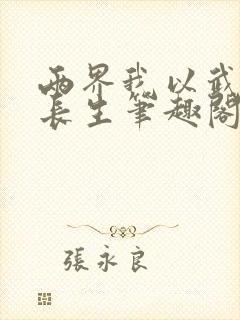 两界我以武
长生笔趣阁
張永良